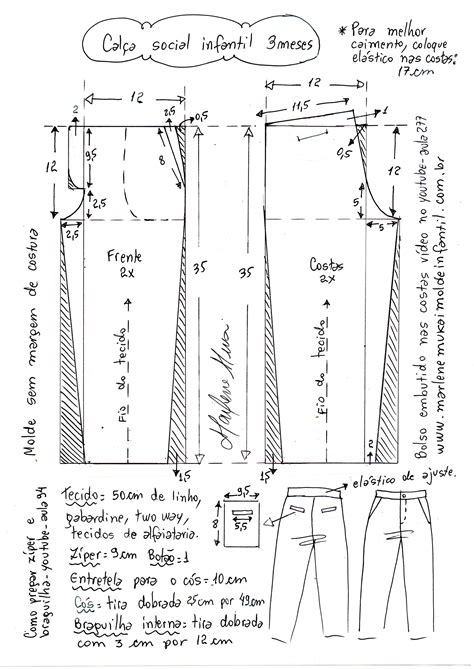 Calça social infantil 3meses
* Para melhor
caimento, coloque
elástico nas costas:
17cm
12
2
2,5
0,5
12
9,5
8
2,5
2,5
35
Frente
2x
Fio do tecido
1,5
12
11,5
1
0,5
12
5
5
35
Costas
2x
Fio do tecido
2
1,5
Marlene Mukai
Molde sem margem de costura
Bolso embutido nas costas vídeo no youtube-aula 277
www.marlenemukaimoldeinfantil.com.br
Como prepar zíper e
braguilha-youtube-aula 94
Tecido= 50cm de linho,
gabardine, two way,
tecidos de alfaiataria.
Zíper= 9cm Botão=1
Entretela para o cós=10cm
Cós= tira dobrada 25cm por 49cm
Braguilha interna= tira dobrada
com 3 cm por 12 cm
9,5
8
5,5
elástico de ajuste.